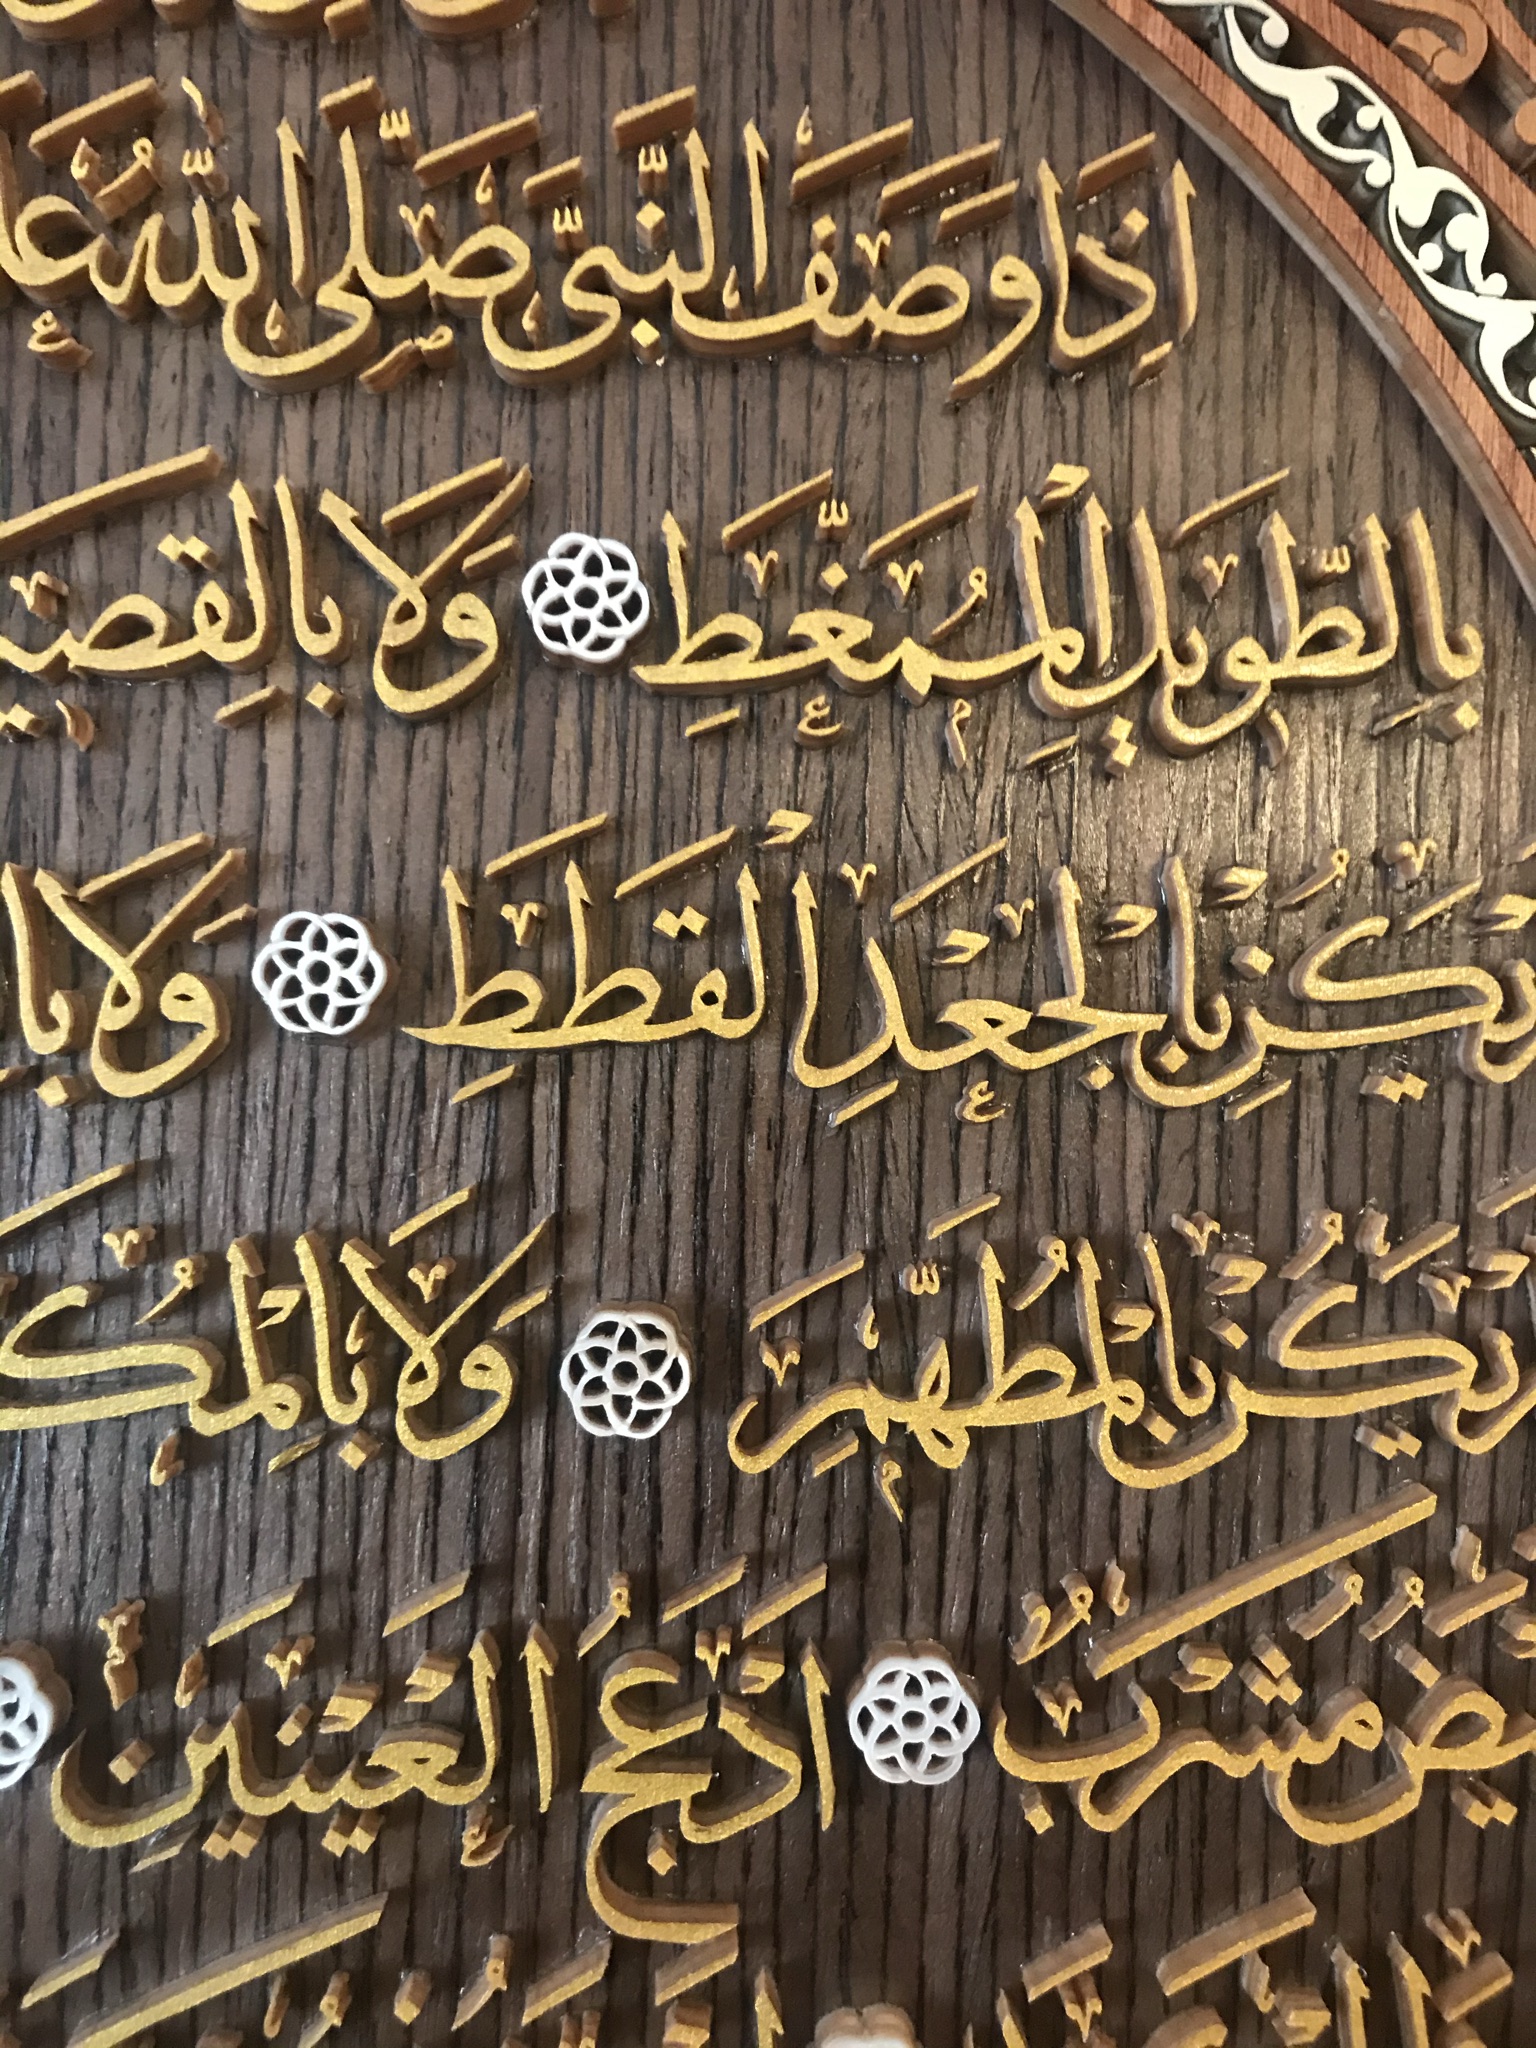 اِذَا وَصَفَ النَّبِىَّ صَلَّى اللّٰهُ
بِالطَّوِيلِ الْمُمَغَّطِ وَلَا بِالْقَصِي
يَكُنْ بِالْجَعْدِ الْقَطَطِ وَلَا بِا
يَكُنْ بِالْمُطَهَّمِ وَلَا بِالْمُكَ
يَضُ مُشْرَبٌ اَدْعَجُ الْعَيْنَيْنِ